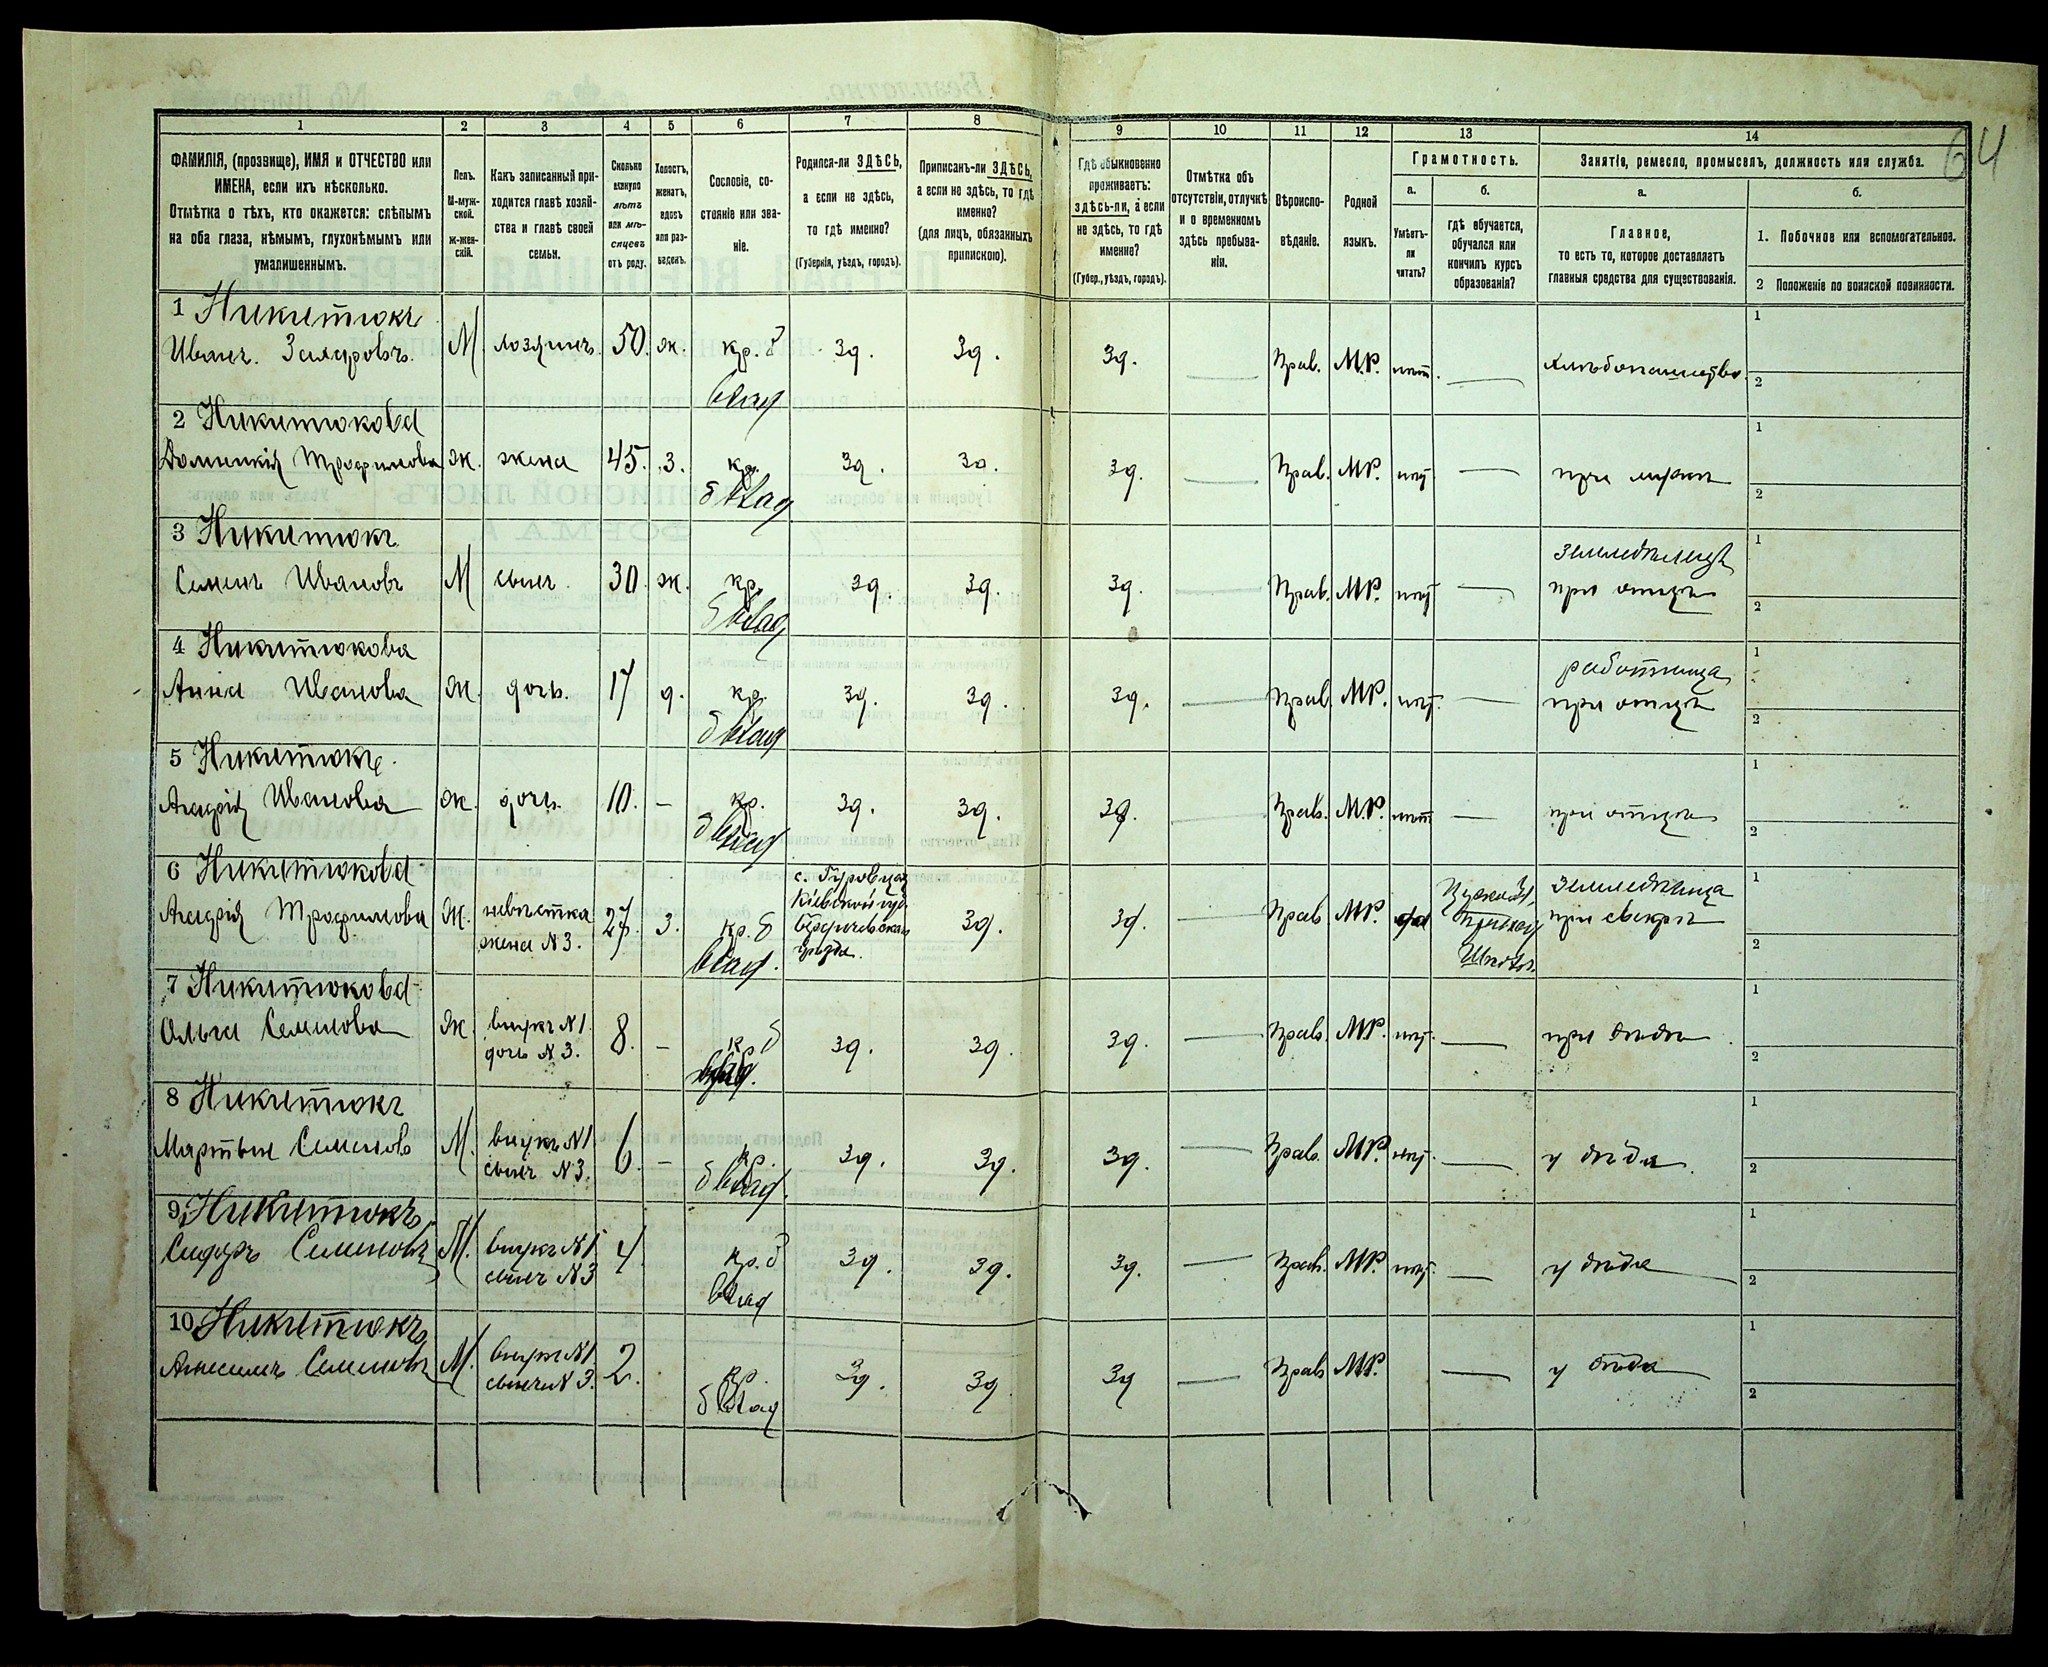 64
1 2 3 4 5 6 7 8 9 10 11 12 13 14
ФАМИЛІЯ, (прозвище), ИМЯ и ОТЧЕСТВО или
ИМЕНА, если ихъ нѣсколько.
Отмѣтка о тѣхъ, кто окажется: слѣпымъ
на оба глаза, нѣмымъ, глухонѣмымъ или
умалишеннымъ.
Полъ.
М-муж-
ской.
ж-жен-
скій.
Какъ записанный при-
ходится главѣ хозяй-
ства и главѣ своей
семьи.
Сколько
минуло
лѣтъ
или мѣ-
сяцевъ
отъ роду.
Холостъ,
женатъ,
вдовъ
или раз-
веденъ.
Сословіе, со-
стояніе или зва-
ніе.
Родился-ли ЗДѢСЬ,
а если не здѣсь,
то гдѣ именно?
(Губернія, уѣздъ, городъ).
Приписанъ-ли ЗДѢСЬ,
а если не здѣсь, то гдѣ
именно?
(для лицъ, обязанныхъ
припискою).
Гдѣ обыкновенно
проживаетъ:
здѣсь-ли, а если
не здѣсь, то гдѣ
именно?
(Губер., уѣздъ, городъ).
Отмѣтка объ
отсутствіи, отлучкѣ
и о временномъ
здѣсь пребыва-
ніи.
Вѣроиспо-
вѣданіе.
Родной
языкъ.
Грамотность.
а. б.
Умѣетъ-
ли
читать?
гдѣ обучается,
обучался или
кончилъ курсъ
образованія?
Занятіе, ремесло, промыселъ, должность или служба.
а. б.
Главное,
то есть то, которое доставляетъ
главныя средства для существованія.
1. Побочное или вспомогательное.
2 Положеніе по воинской повинности.
1 Никитюкъ
Иванъ М. хозяинъ. 50. ж. кр. б зд. зд. зд. Прав. М.Р. нѣт. хлѣбопашество. 1
влад 2
2 Никитюкова
Домникія Трофимова ж. жена 45. з. кр. зд. зд. зд. Прав. МР. нѣт при мужѣ 1
б влад 2
3 Никитюкъ
Семенъ Ивановъ М сынъ. 30. ж. кр. зд. зд. зд. Прав. МР. нѣт земледѣлецъ 1
б влад при отцѣ 2
4 Никитюкова
Анна Иванова Ж. дочь. 17 д. кр. зд. зд. зд. Прав. МР. нѣт. работница 1
б влад при отцѣ 2
5 Никитюкъ
Иванова ж. дочь. 10. — кр. зд. зд. зд. Прав. М.Р. нѣт — при отцѣ 1
б влад 2
6 Никитюкова
Трофимова Ж. невѣстка 27 з. кр. б с. зд. зд. Прав МР. да земледѣлица 1
жена N 3. влад. Кіевской губ. при свекрѣ 2
Бердичевскаго
уѣзда.
7 Никитюкова
Ольга Семенова Ж. внукъ N 1. 8. — кр б зд. зд. зд. Прав. МР. нѣт. при дѣдѣ 1
дочь N 3. влад. 2
8 Никитюкъ
Мартынъ Семеновъ М. внукъ N 1 6. — кр. зд. зд. зд. Прав. МР. нѣт. у дѣда 1
сынъ N 3. б влад. 2
9 Никитюкъ
Сидоръ Семеновъ М. внукъ N 1 4. кр. б зд. зд. зд. Прав. МР. нѣт. у дѣда 1
сынъ N 3 влад 2
10 Никитюкъ
Анисимъ Семеновъ М. внукъ N 1 2. кр. зд. зд. зд Прав МР. у дѣда 1
сынъ N 3. б влад 2